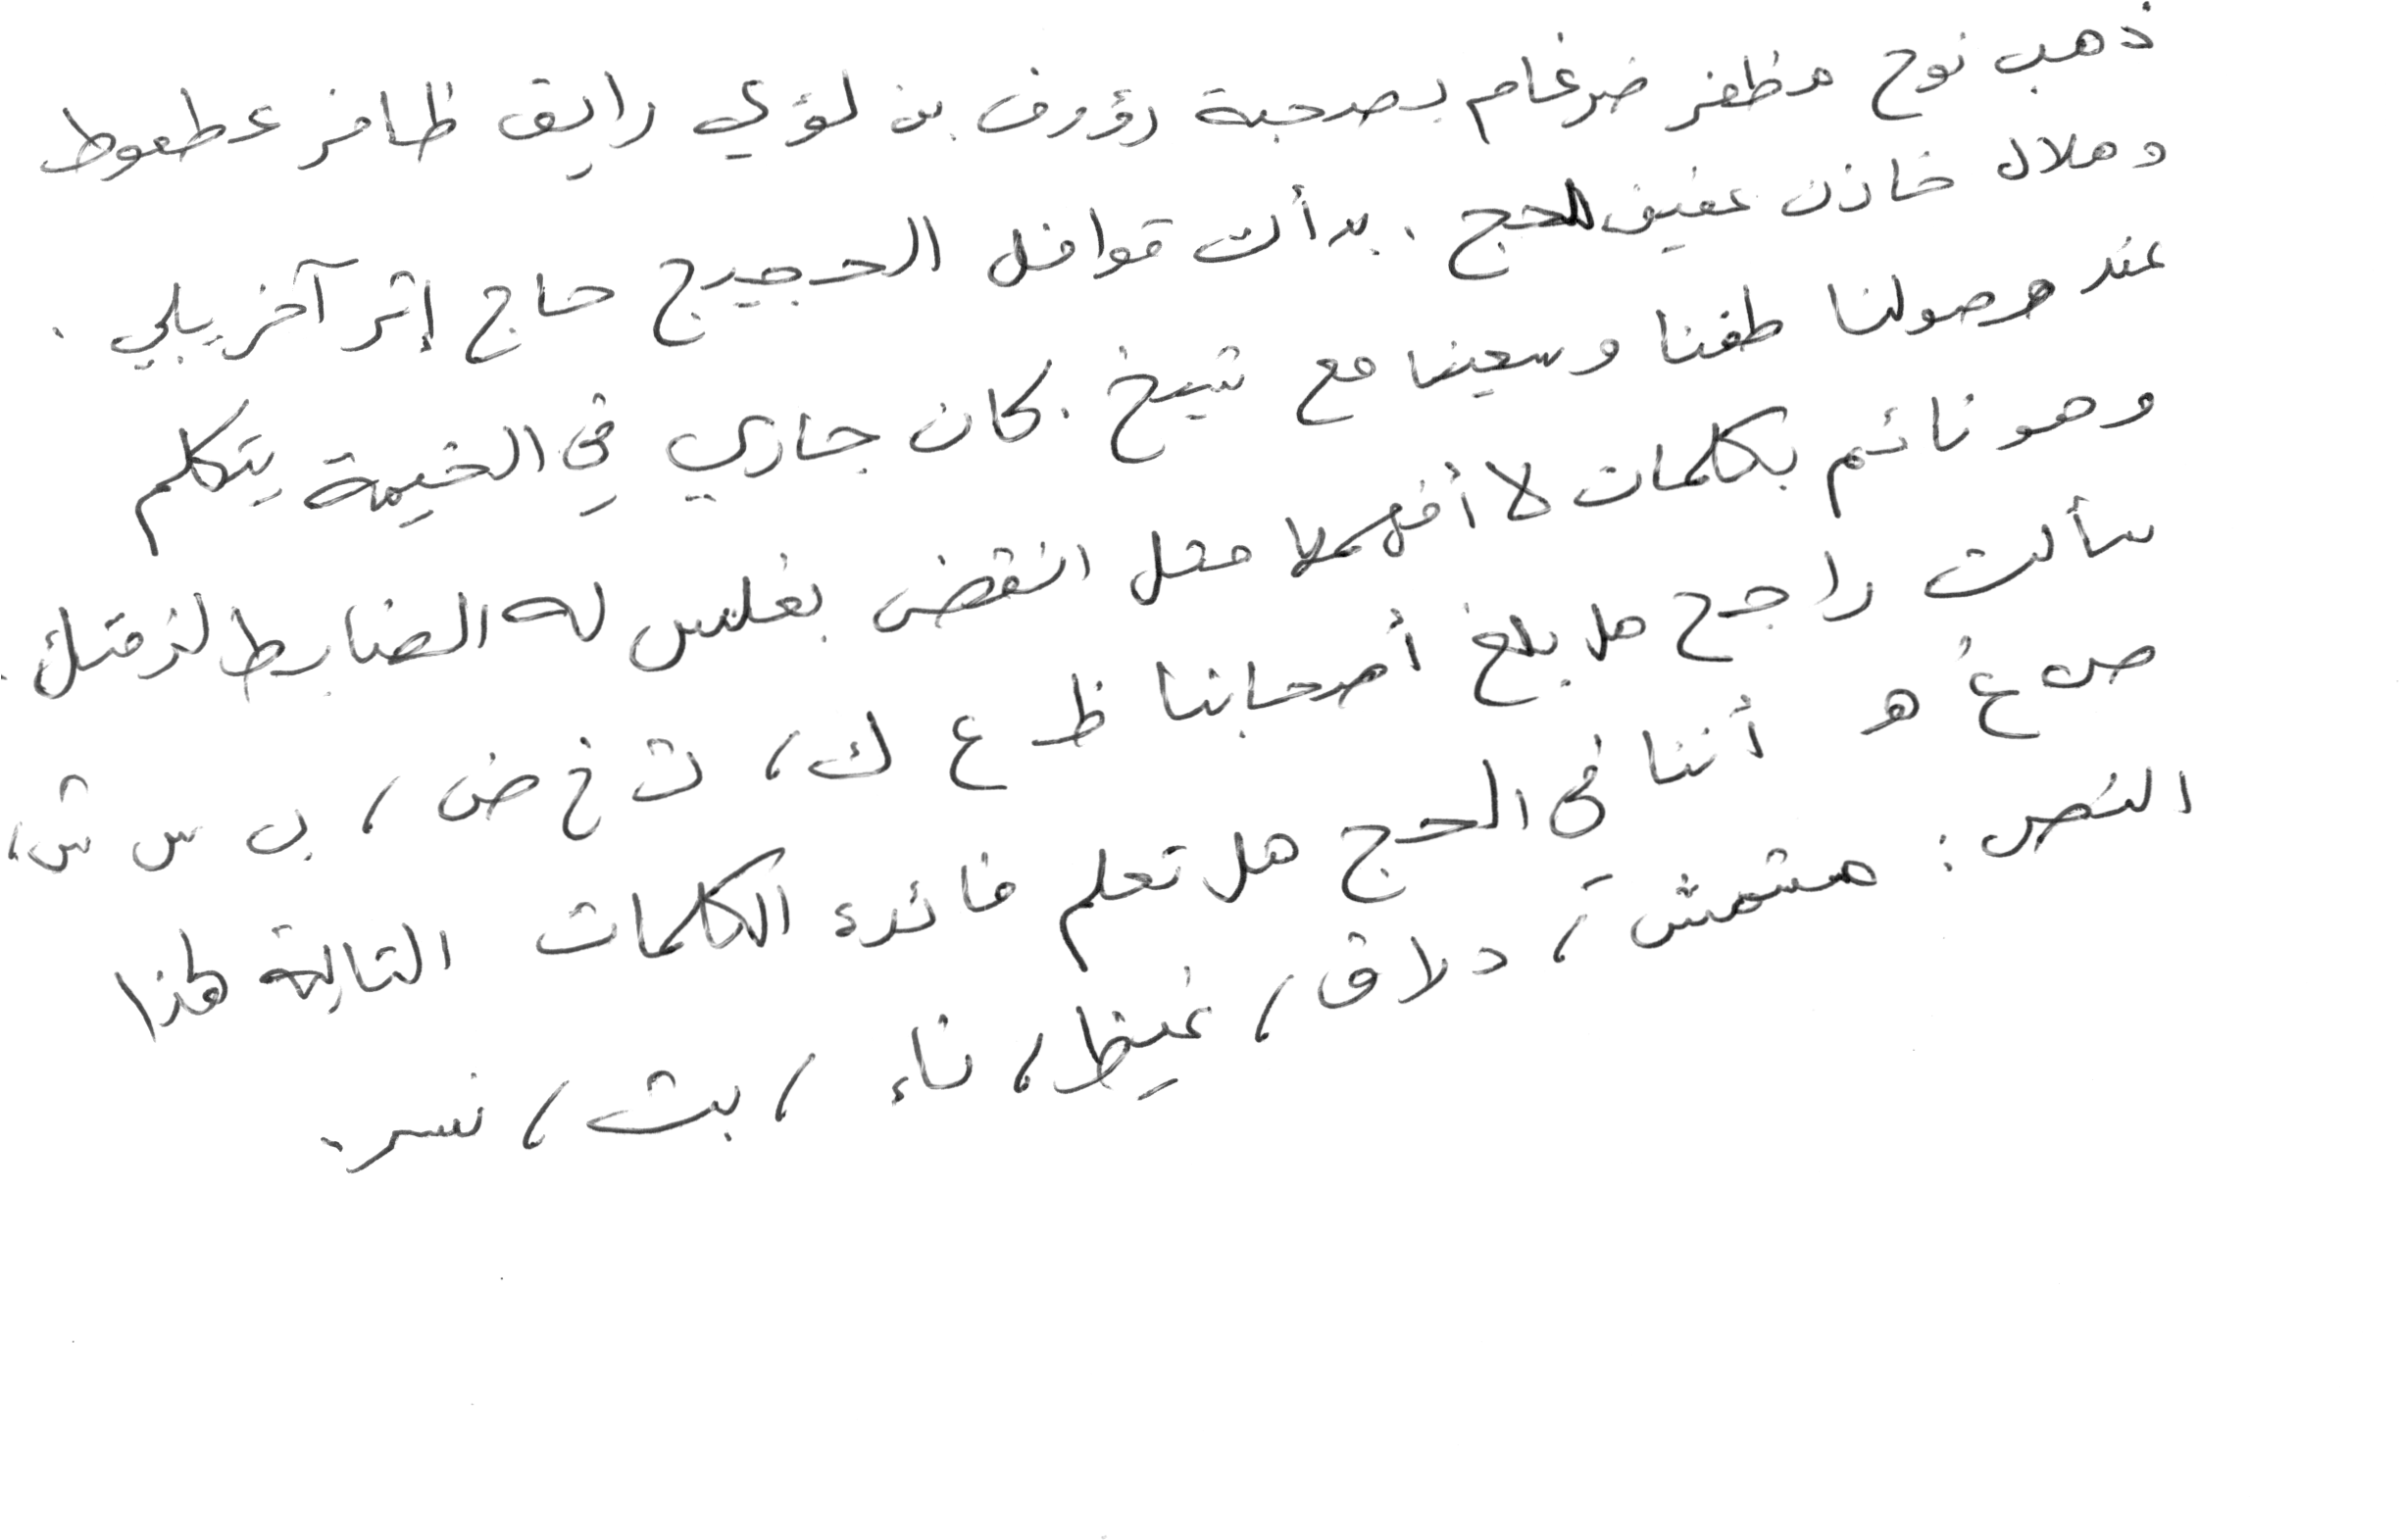 ذهب نوح مظفر ضرغام بصحبة رؤوف بن لؤي رايق ظافر عطعوط
وهلال خازن عفيف للحج . بدأت قوافل الحجيج حاج إثر آخر يلي .
عند وصولنا طفنا وسعينا مع شيخ . كان جاري في الخيمة يتكلم
وهو نائم بكلمات لا أفهمها مثل انقض بغلس له الضابط لزقتك .
سألت راجح هل بلغ أصحابنا ظ ع ك، ث خ ض، ب س ش،
ص غ ه أننا في الحج هل تعلم فائدة الكلمات التالية هذا
النص : مشمش، دلاق، غيظ، ناء، بث، نسر.